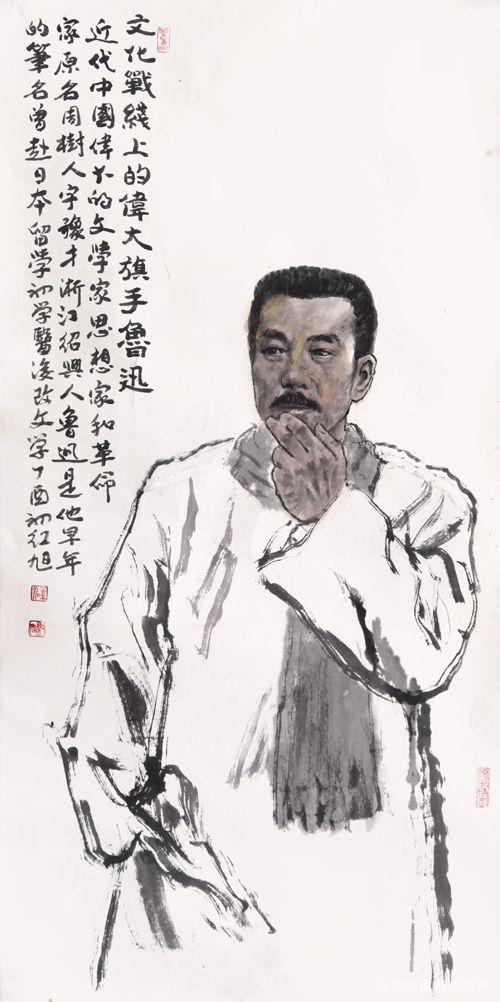 文化戰綫上的偉大旗手魯迅
近代中國偉大的文學家思想家和革命
家原名周樹人字豫才浙江紹興人魯迅是他早年
的筆名曾赴日本留學初学醫後改文學丁酉初旭